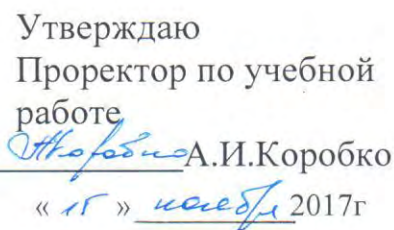 Утверждаю
Проректор по учебной
работе
А.И.Коробко
« 15 » ноября 2017г